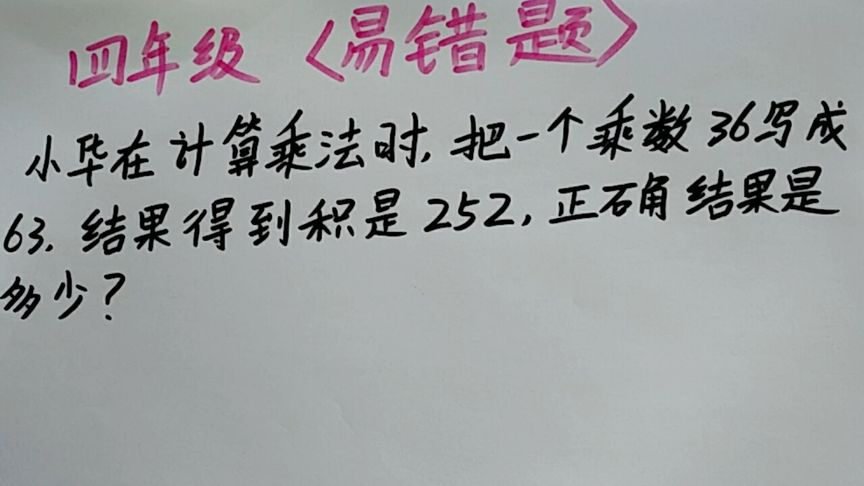 四年级〈易错题〉
小华在计算乘法时,把一个乘数36写成
63.结果得到积是252,正确结果是
多少?